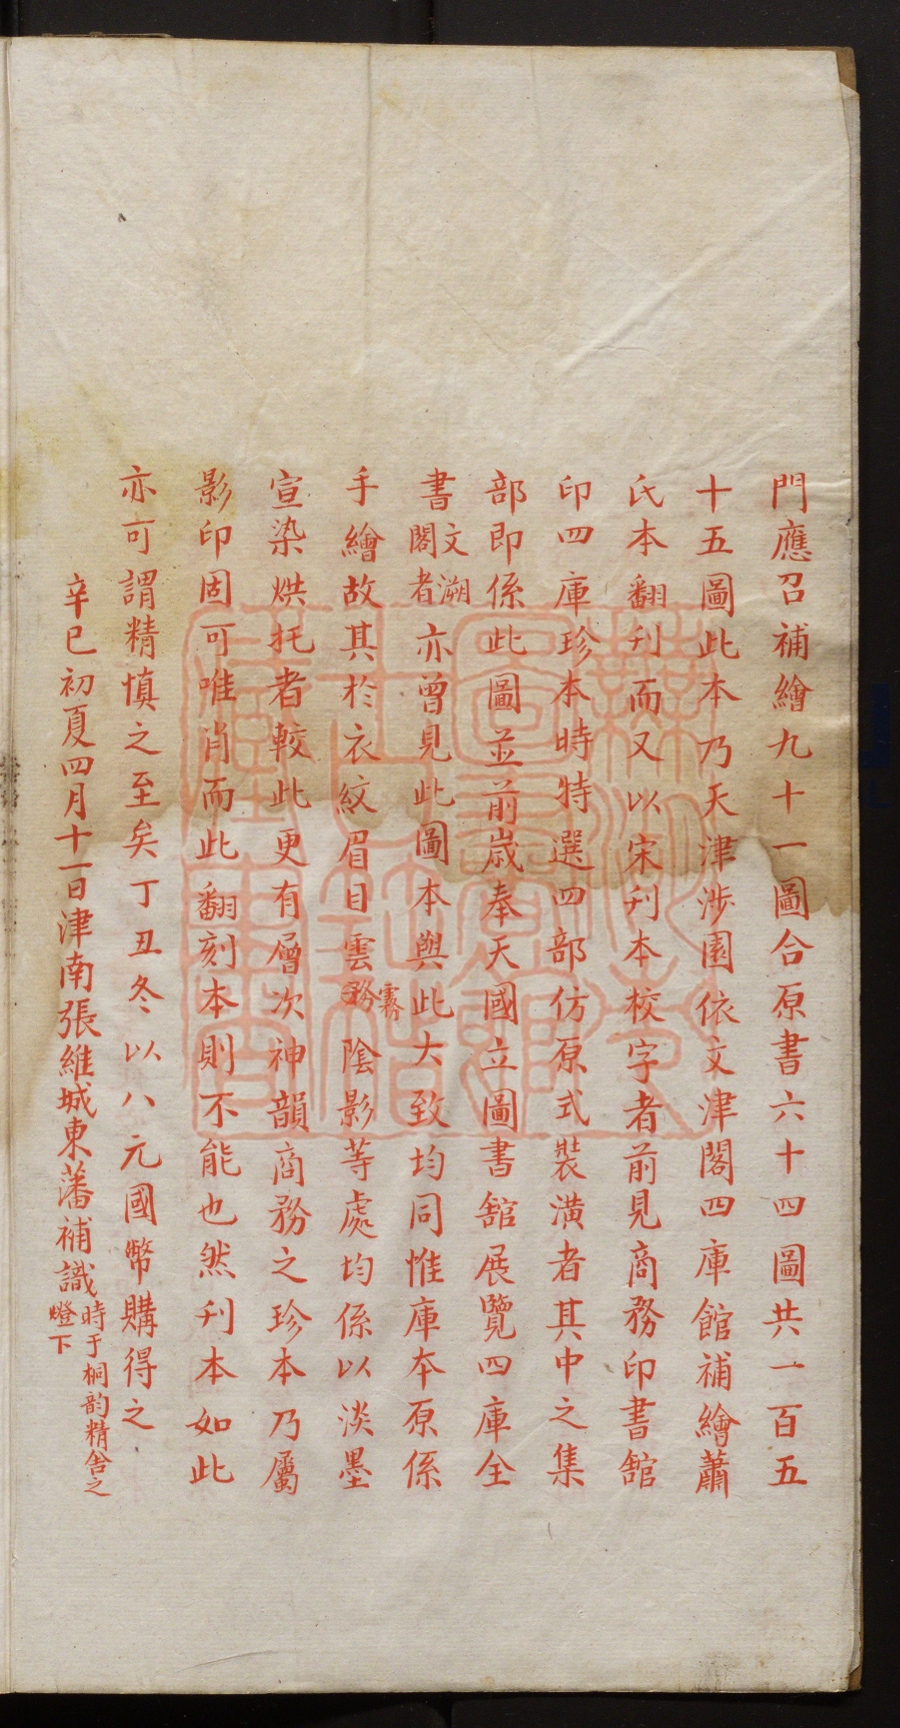 門應召補繪九十一圖合原書六十四圖共一百五
十五圖此本乃天津涉園依文津閣四庫館補繪蕭
氏本翻刋而又以宋刋本校字者前見商務印書館
印四庫珍本時特選四部仿原式裝潢者其中之集
部即係此圖並前歲奉天國立圖書館展覽四庫全
書文溯閣者亦曾見此圖本與此大致均同惟庫本原係
手繪故其於衣紋眉目雲務霧陰影等處均係以淡墨
宣染烘托者較此更有層次神韻商務之珍本乃屬
影印固可唯肖而此翻刻本則不能也然刋本如此
亦可謂精慎之至矣丁丑冬以八元國幣購得之
辛巳初夏四月十一日津南張維城東藩補識時于桐韵精舍之燈下